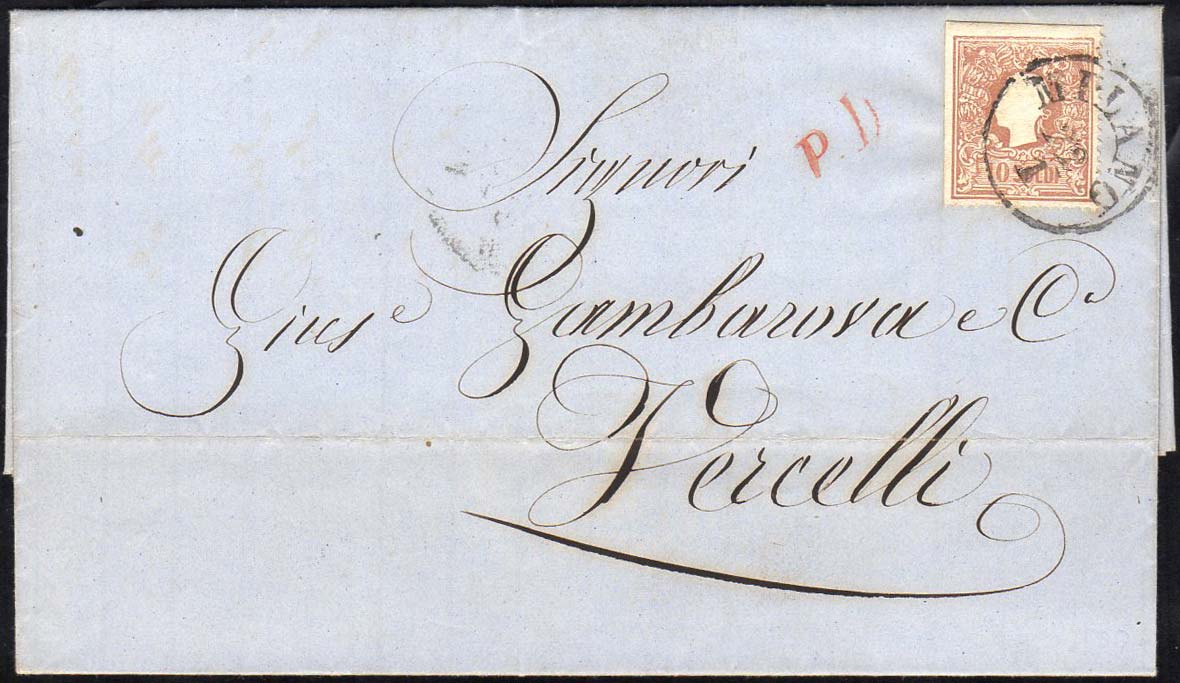 MILANO
P.D
10 SOLDI
Signori
Gius.e Gambarova e C.
Vercelli